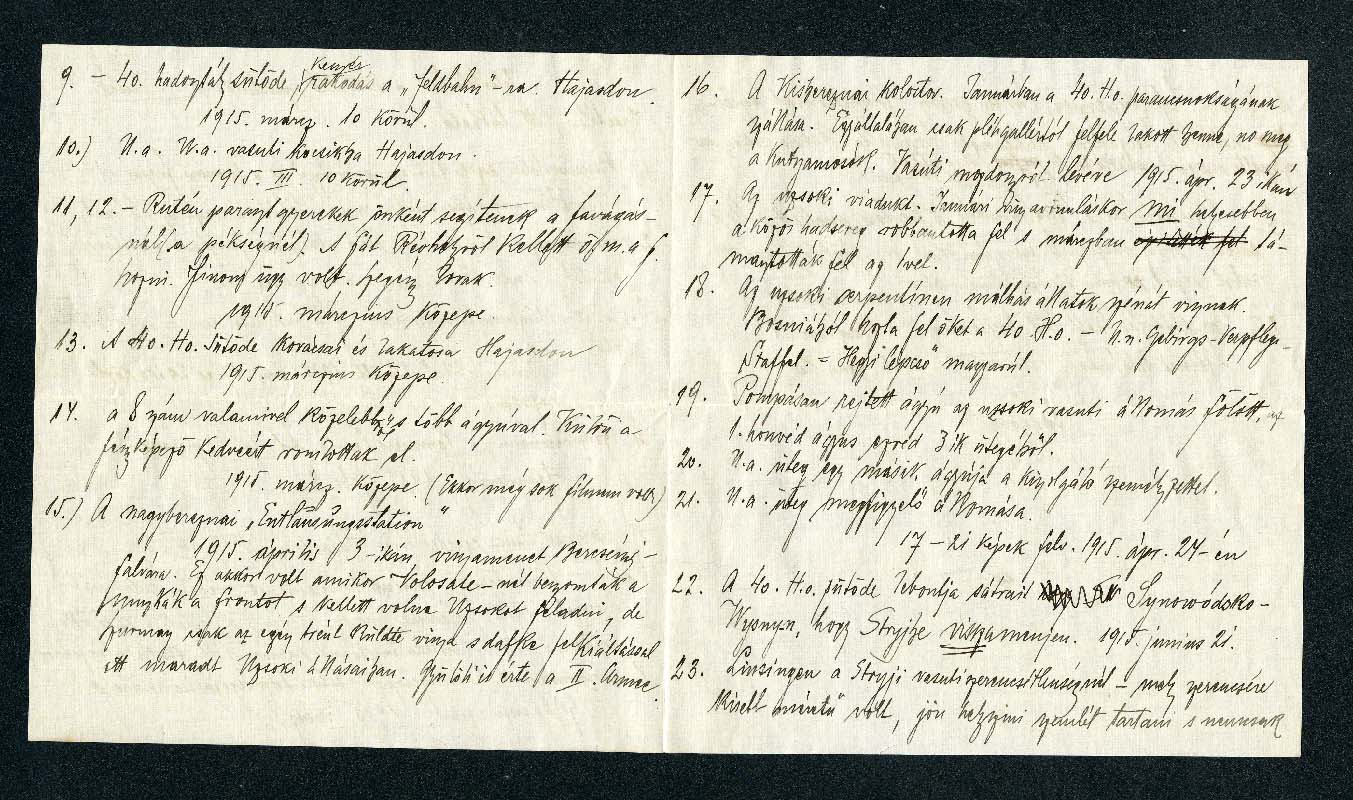 9. – 40. hadosztály sütöde kenyér rakodás a „feldbahn"-ra Hajasdon.
1915. márcz. 10 körül.
10.) U.a. U.a. vasuti kocsikba Hajasdon.
1915. III. 10 körül.
11, 12. – Rutén paraszt gyerekek önként segítenek a favágás-
nál (a pékségnél). A fát Révhelyről kellett
hozni. Finom ügy volt. hegyes utak.
1915. márczius közepe.
13. A 40. Ho. Sütöde kovácsai és lakatosa Hajasdon
1915. márczius közepe.
14. a 8 szám valamivel közelebbről s több ágyúval. Külön a
fényképező kedvéért vonultak el.
1915. márcz. közepe. (Ekkor még sok filmem volt)
15.) A nagybereznai „Entlausungsstation"
1915. április 3-ikán visszamenet Bercsényi-
falvára. Ez akkor volt amikor Volosate-nál benyomták a
muszkák a frontot s kellett volna Uzsokot feladni, de
Szurmay csak az egész trént küldte vissza s dafke felkiáltással
ott maradt Uzsoki állásaiban. Gyűlöli is érte a II. Armee.
16. A Kisbereznai kolostor. Januárban a 40. Ho. parancsnokságának
szállása. Egyáltalában csak plégallértól felfele lakott benne, no meg
a kutyamosók. Vasúti mozdonyról levéve 1915. ápr. 23 ikán
17. Az uzsoki viadukt. Januári visszavonuláskor mi helyesebben
a közös hadsereg robbantotta fel s márczban építették fel tá-
masztották fel az 1vel.
18. Az uzsoki serpentinen málhás állatok szénát visznek.
Boszniából hozta fel őket a 40. H.o. – U.n. Gebirgs-Verpflegs-
Staffel. = Hegyi lépcső magyarúl.
19. Pompásan rejtett ágyú az uzsoki vasuti állomás fölött, az
1. honvéd ágyus ezred 3ik ütegéből.
20. U.a. üteg egy másik ágyúja a kiszolgáló személyzettel.
21. U.a. üteg megfigyelő állomása.
17 – 21 képek felv. 1915. ápr. 24-én
22. A 40. H.o. sütöde lebontja sátrait Synowódsko-
Wysnyn, hogy Stryjbe visszamenjen. 1915. június 21.
23. Linsingen a Stryji vasuti szerencsétlenségnél – mely szerencsére
kisebb méretű volt, jön helyszini szemlét tartani s nemcsak